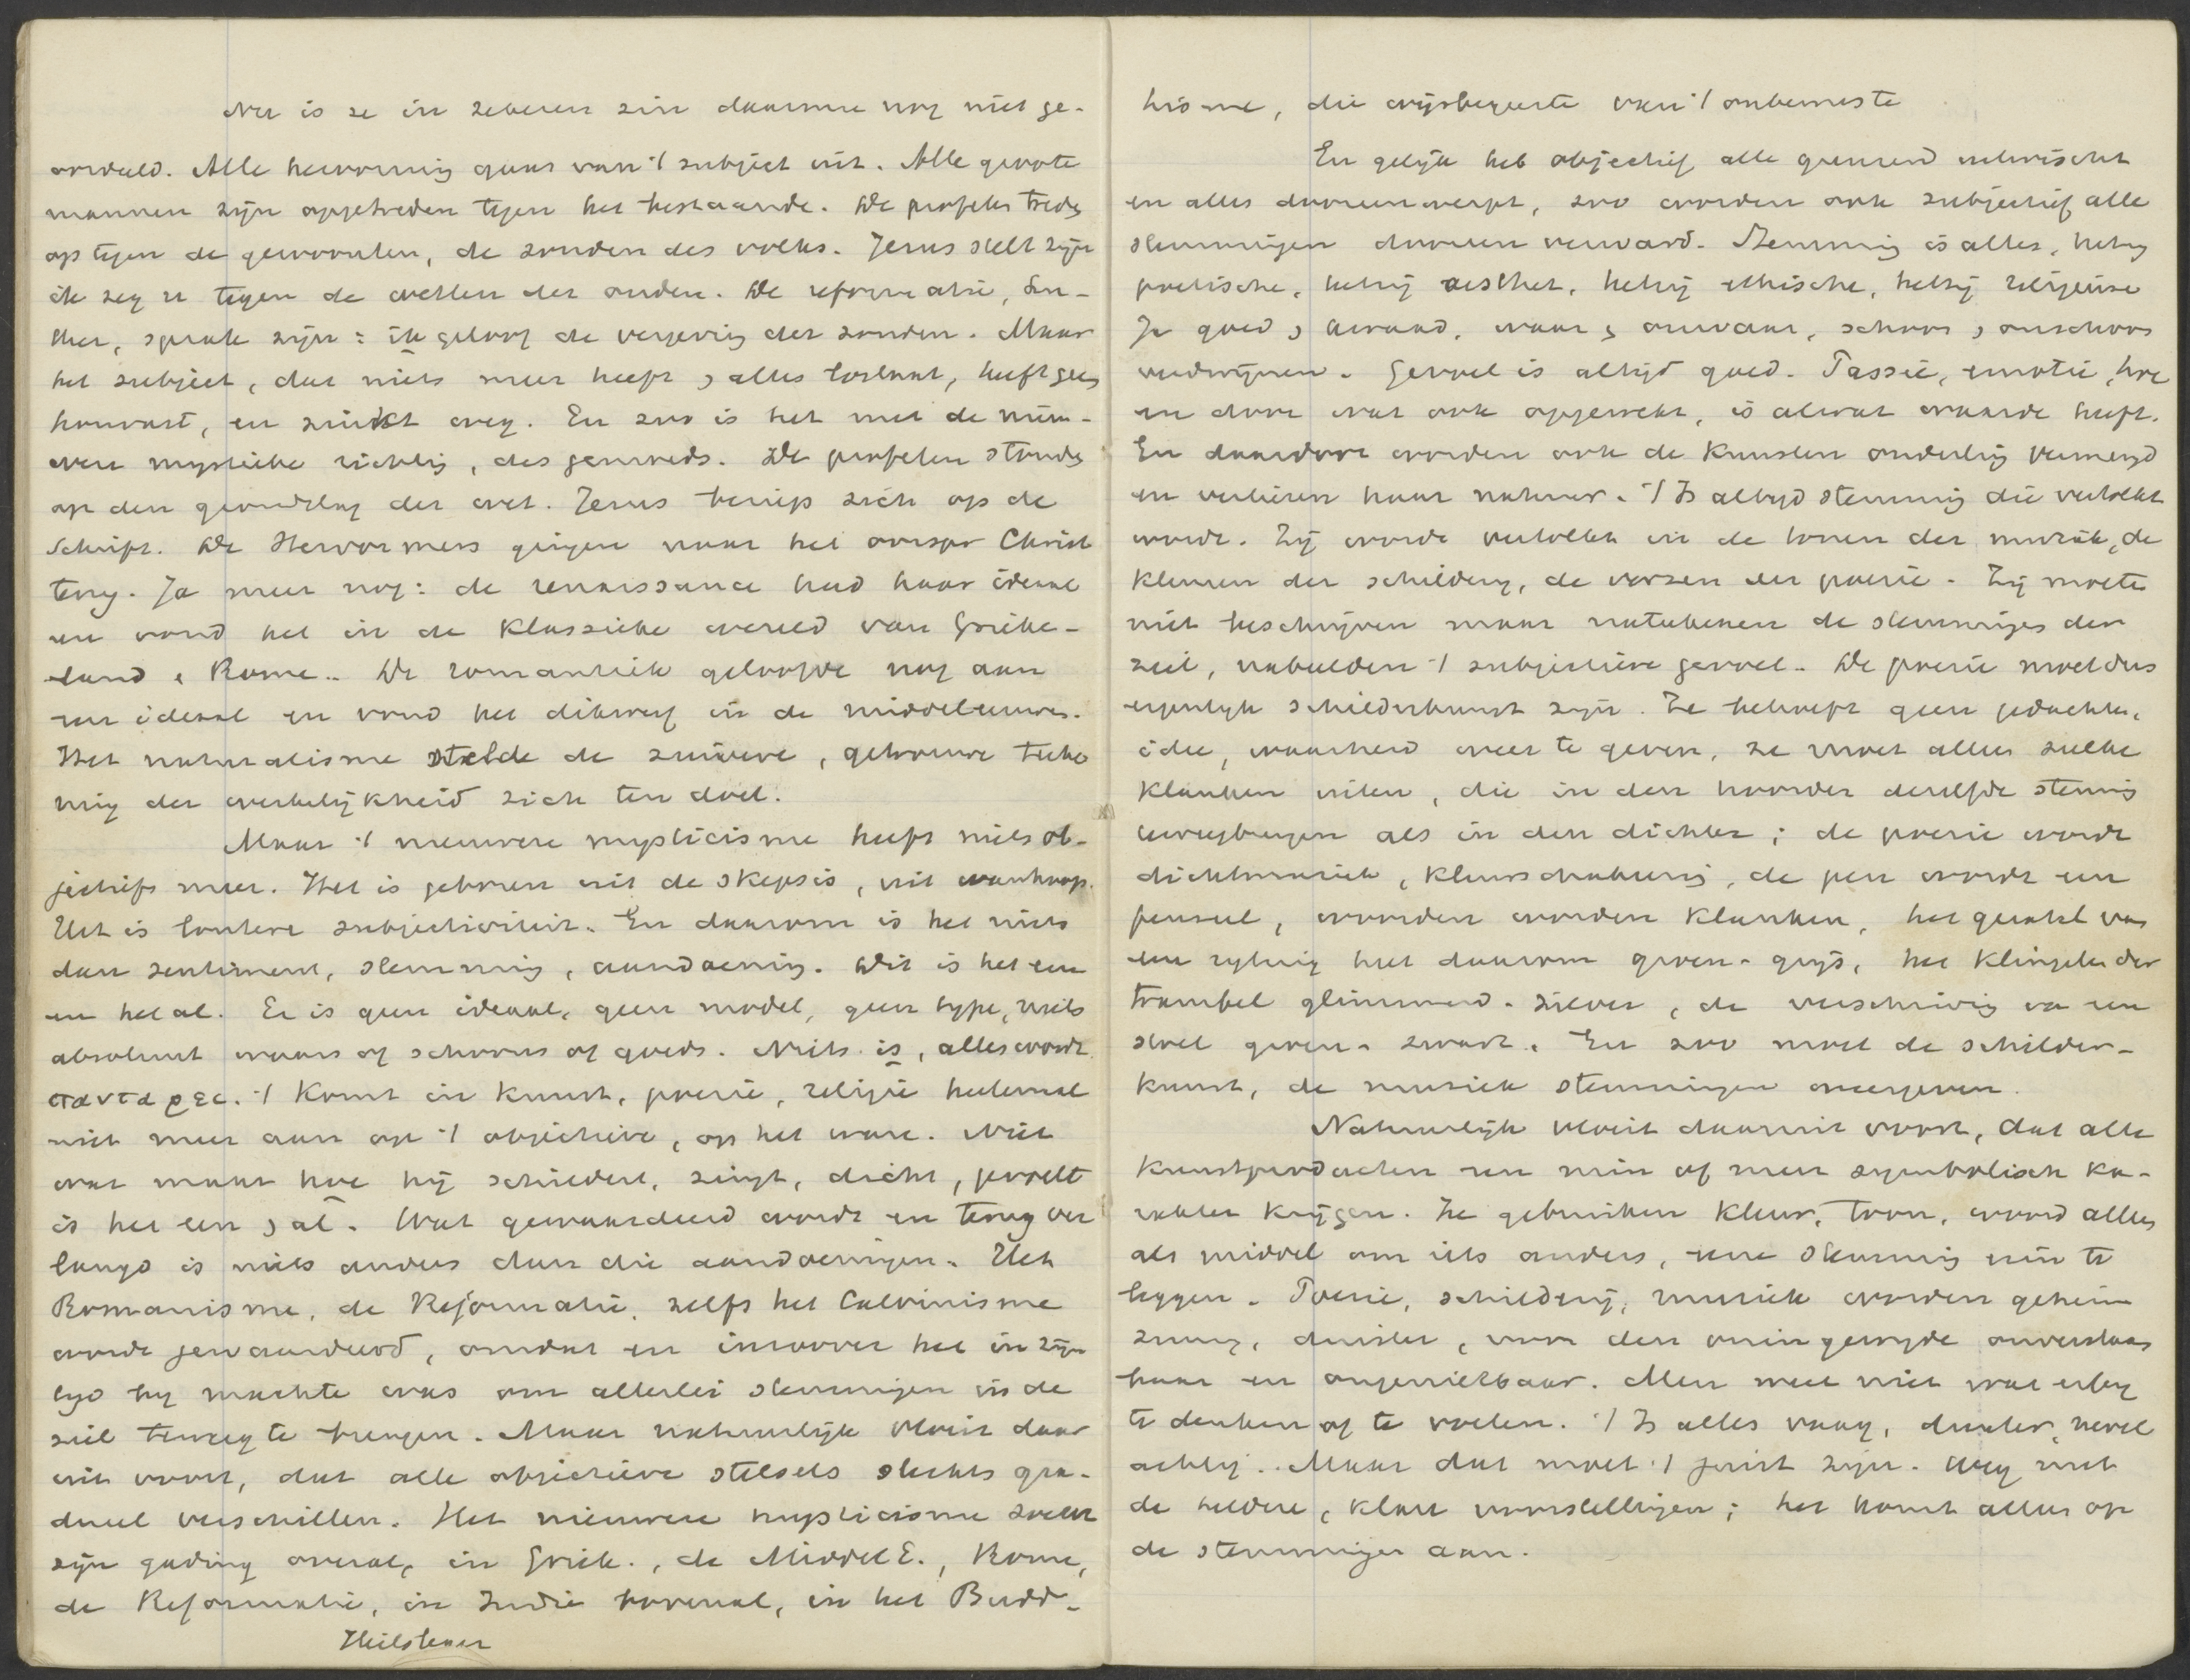 Nu is ze in zekeren zin daarmee nog niet ge-
oordeeld. Alle hervorming gaat van 't subject uit. Alle groote
mannen zijn opgetreden tegen het bestaande. De profeten treden
op tegen de gewoonten, de zonden des volks. Jezus stelt zijn
ik zeg u tegen de wetten der ouden. De reformatie, Lu-
ther, sprak zijn: ik geloof de vergeving der zonden. Maar
het subject, dat niets meer heeft, alles loslaat, heeft geen
houvast, en zinkt weg. En zoo is het met de nieu-
were mystieke richting, des gemoeds. De profeten stonden
op den grondslag der wet. Jezus beriep zich op de
Schrift. De Hervormers gingen naar het oorspr Christ
terug. Ja meer nog: de renaissance had haar ideaal
en vond het in de Klassieke wereld van Grieke-
land & Rome. De romantiek geloofde nog aan
een ideaal en vond het dikwerf in de middeleeuwen.
Het naturalisme stelde de zuivere, getrouwe teeke
ning der werkelijkheid zich ten doel.
Maar 't nieuwere mysticisme heeft niets ob-
jectiefs meer. Het is geboren uit de skepsis, uit wanhoop.
Het is loutere subjectiviteit. En daarom is het niets
dan sentiment, stemming, aandoening. Dit is het een
en het al. Er is geen ideaal, geen model, geen type, niets
absoluut waars of schoons of goeds. Niets is, alles wordt
παντα ρει. 't Komt in kunst, poesie, religie heelemaal
niet meer aan op 't objectieve, op het ware. Niet
wat maar hoe hij schildert, zingt, dicht, gevoelt
is het een & al. Wat gewaardeerd wordt en terug ver
langd is niets anders dan die aandoeningen. Het
Romanisme, de Reformatie, zelfs het Calvinisme
wordt gewaardeerd, omdat en inzoover het in zijn
tijd bij machte was om allerlei stemmingen in de
ziel teweeg te brengen. Maar natuurlijk vloeit daar
uit voort, dat alle objectieve stelsels slechts gra-
dueel verschillen. Het nieuwere mysticisme zoekt
zijn gading overal, in Griek., de Middel E., Rome,
de Reformatie, in Indie vooral, in het Budd-
hisme, die wijsbegeerte van 't onbewuste
En gelijk het objectief alle grenzen uitwischt
en alles dooreenwerpt, zoo worden ook subjectief alle
stemmingen dooreen verward. Stemming is alles, hetzij
poetische, hetzij aesthet., hetzij ethische, hetzij religieuse
Ja goed & kwaad, waar & onwaar, schoon & onschoon
verdwijnen. Gevoel is altijd goed. Passie, emotie, hoe
en door wat ook opgewekt, is alwat waarde heeft.
En daardoor worden ook de Kunsten onderling vermengd
en verliezen haar natuur. 't Is altijd stemming die vertolkt
wordt. Zij wordt vertolkt in de tonen der muziek, de
kleuren der schilderij, de verzen der poesie. Zij moeten
niet beschrijven maar natuteekenen de stemmingen der
ziel, nabeelden 't subjectieve gevoel. De poesie moet dus
eigenlijk schilderkunst zijn. Ze behoeft geen gedachte,
idee, waarheid weer te geven, ze moet alleen zulke
klanken uiten, die in den hoorder dezelfde stemming
teweegbrengen als in den dichter; de poesie wordt
dichtmuziek, kleurschakeering, de pen wordt een
penseel, woorden worden klanken, het geratel van
een rijtuig heet daarom groen-grijs, het klingelen der
trambel glimmend-zilver, de verschuiving van een
stoel groen-zwart. En zoo moet de schilder-
kunst, de muziek stemmingen weergeven.
Natuurlijk vloeit daaruit voort, dat alle
kunstproducten een min of meer symbolisch ka-
rakter krijgen. Ze gebruiken kleur, toon, woord alles
als middel om iets anders, eene stemming uin te
leggen. Poesie, schilderij, muziek worden geheim
zinnig, duister, voor den oningewijde onverstaan
baar en ongenietbaar. Men weet niet wat erbij
te denken of te voelen. 't Is alles vaag, duister, nevel
achtig. Maar dat moet 't juist zijn. Weg met
de heldere, klare voorstellingen; het komt alleen op
de stemmingen aan.